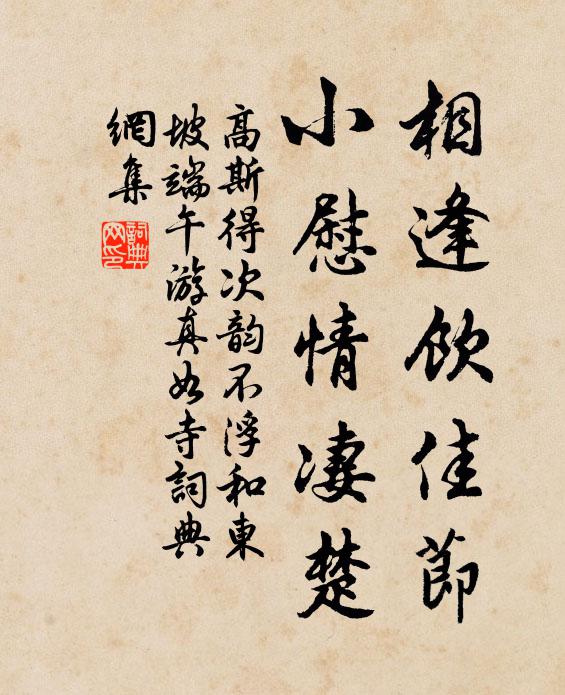 相逢飲佳節
小慰情凄楚
高斯得次韵不浮和東
坡端午游真如寺詞典
網集
詞典
网印